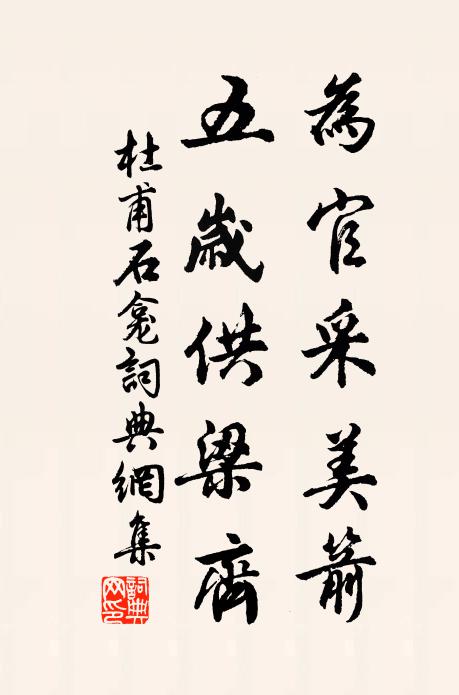 為官采美箭
五歲供梁齊
杜甫石龕詞典網集
詞典網印